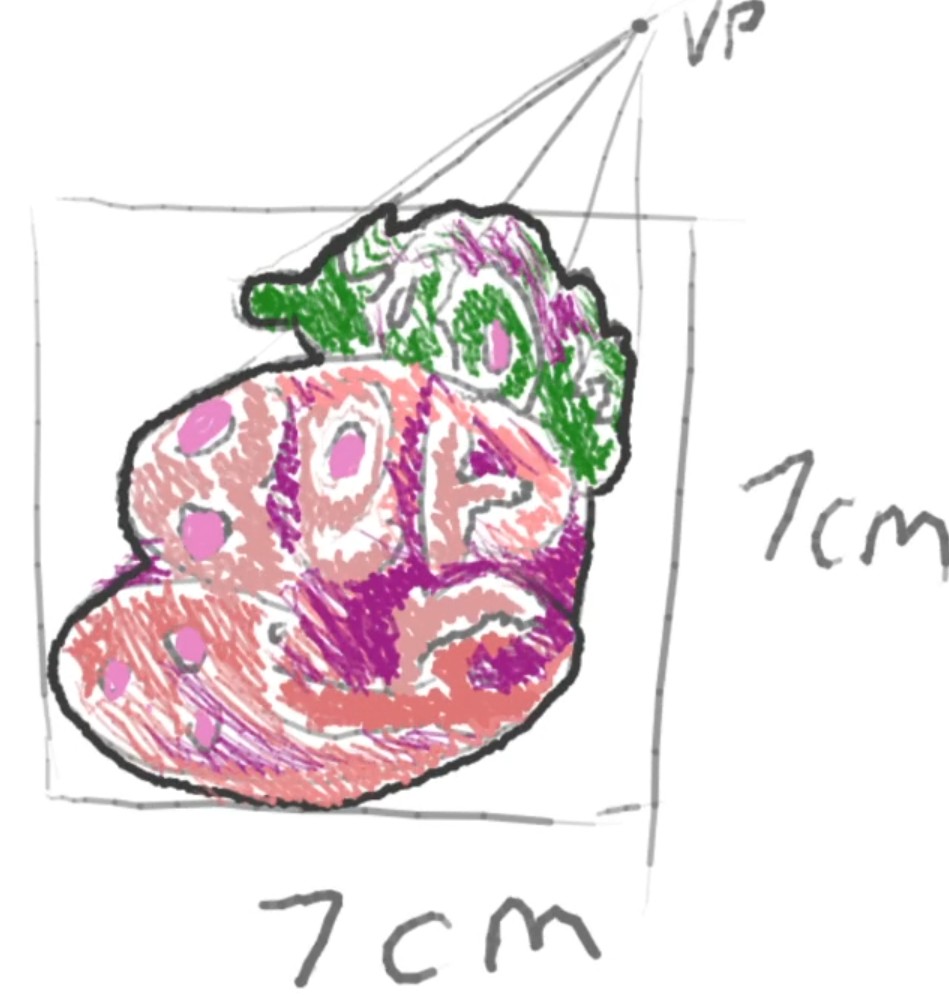 VP
7cm
7cm